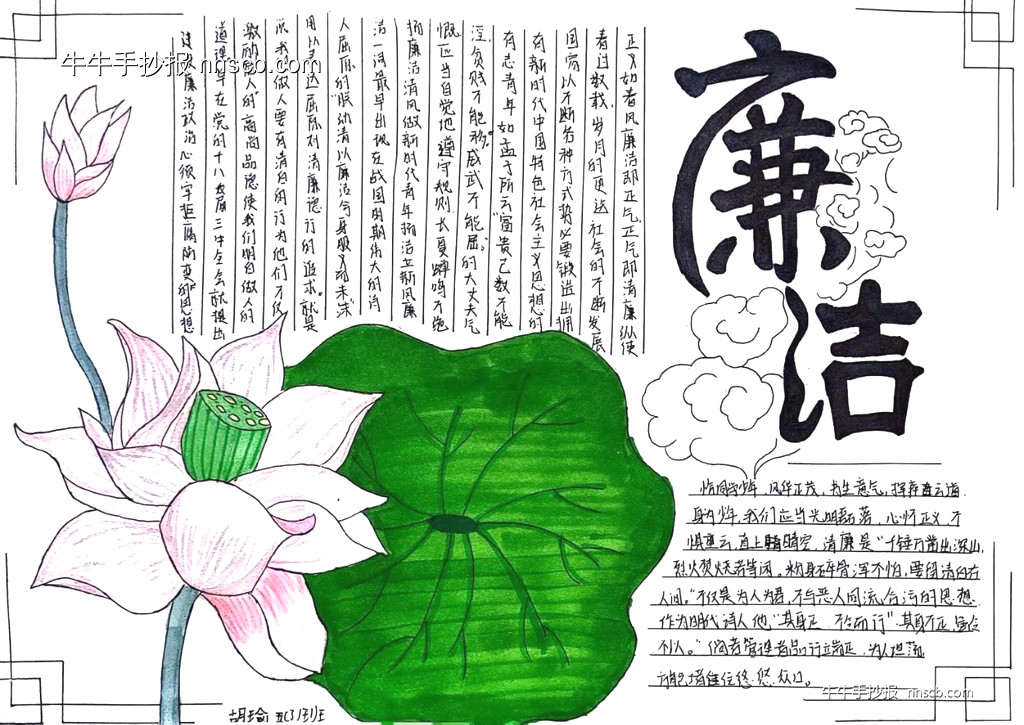 廉洁
正义如春风廉洁即正气,正气即清廉纵使
看过数载,岁月的更迭社会的不断发展
国家以不断各种方式势必要锻造出拥
有新时代中国特色社会主义思想的
有志青年如孟子所云"富贵己数不能
淫,贫贱不能移,威武不能屈。"的大丈夫气
慨应当自觉地遵守规则.长夏蝉鸣不绝
扬廉洁清风做新时代青年扬洁立新风廉
洁一词最早出现在战国时期伟大的诗
人屈原的"朕幼清以廉洁兮身服义而未沫
用以表达屈原对清廉德行的追求。就是
说我们做人要有清白的行为他们不仅
激励人的高尚品德使我们明白做人的
道理早在党的十八届三中全会就提出
建设廉洁政治心须牢拒腐防变的思想
牛牛手抄报 nnscb.com
恰同学少年,风华正茂,书生意气,挥斥
身为少年,我们应当光明磊落,心怀正义,不
惧重云,直上晴空,清廉是"千锤万凿出深山,
烈火焚烧若等闲。粉身碎骨浑不怕,要留清白在
人间。"不仅是为人为君,不与恶人同流合污的思想
作为时代诗人他"其身正 不令而行"其身不正 虽令
不从。"倘若管理者品行端正,为人坦荡
悠悠众口。
牛牛手抄报 nnscb.com
胡瑜 五(3)班